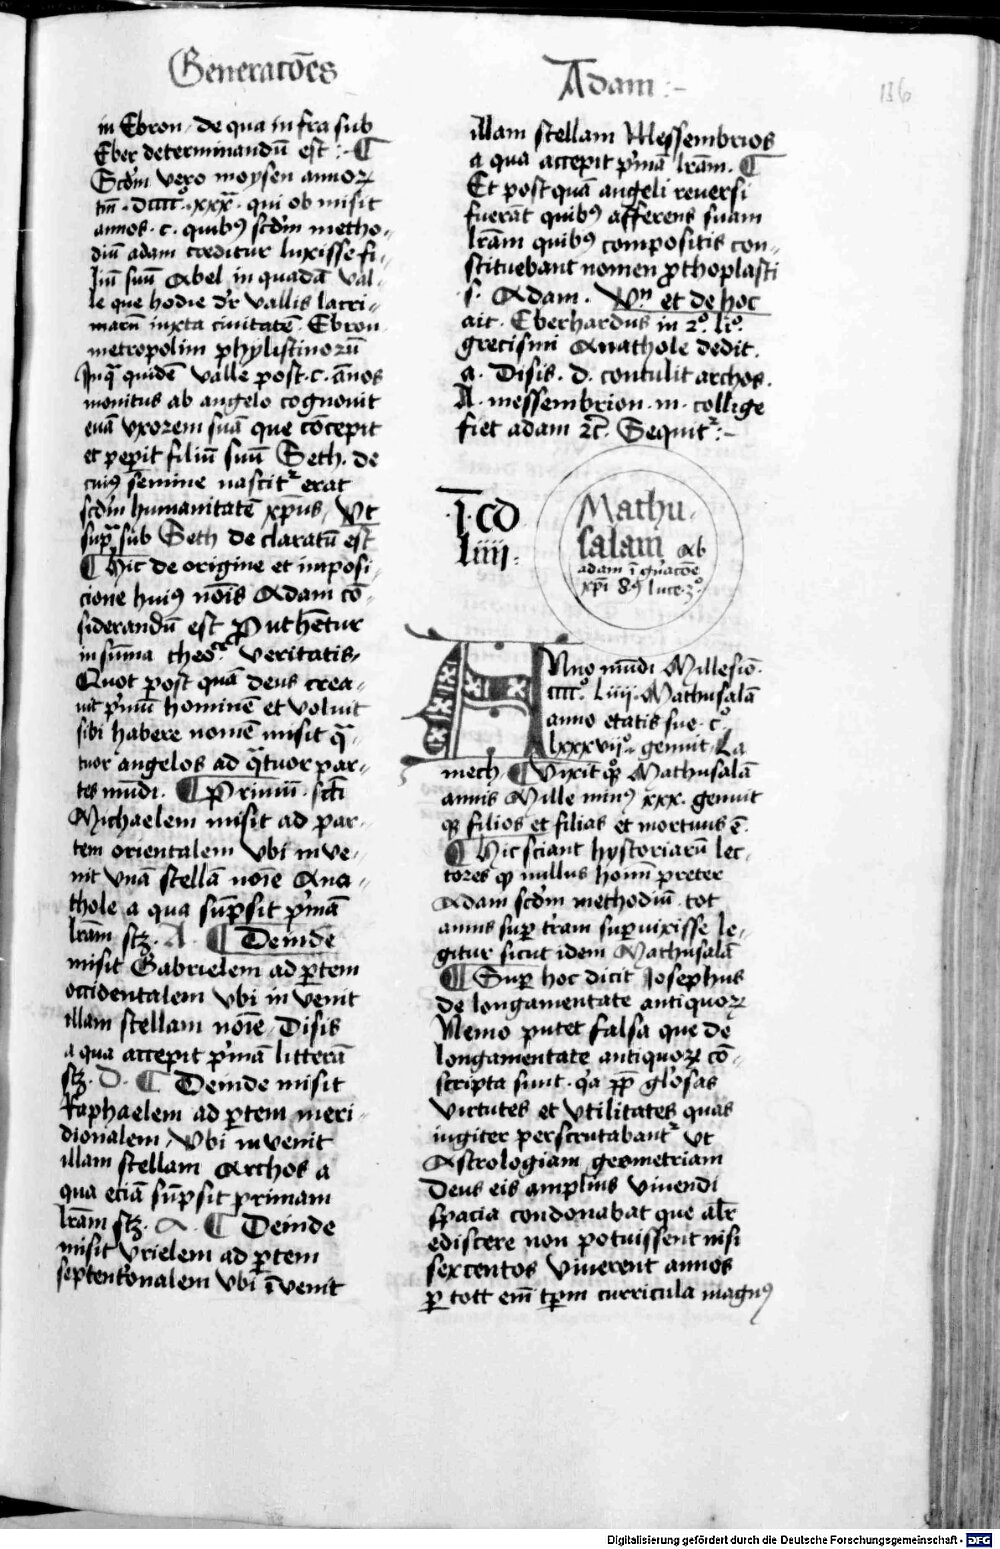 Generacōes
Adam :-
136
in Ebron, de qua infra sub
Eber determinandū est :- ¶
Scdm̄ vero moysen annoꝝ
tm̄ . dcccc° . xxxᵃ . qui ob misit
annos . c . quibꝰ scdm̄ metho-
diū adam creditur luxisse fi-
liū suū Abel in quadā val-
le que hodie dr̄ vallis lacri-
marū iuxta ciuitatē Ebron
metropolim phylistinorū
In qᵃ quidē valle post . c . ānos
monitus ab angelo cognouit
euā vxorem suā que cōcepit
et peperit filiū suū Seth . de
cuiꝰ semine nascitᷣ erat
scdm̄ humanitatē xp̄us, Vt
supᵃ sub Seth declaratū est
¶ Hic de origine et imposi-
cione huiꝰ nōis Adam cō-
siderandū est Put hētur
in sūma theoᵉ veritatis,
Quot post quā deus crea-
uit pᷤmū hominē et voluit
sibi habere nomē misit qᵃ-
tuor angelos ad qᵃtuor par-
tes mūdi . ¶ Primū . sctī
Michaelem misit ad par-
tem orientalem vbi inve-
nit vnā stellā noīe Ana-
thole a qua sūpsit pᷤmā
lrām stꝫ . A . ¶ Deinde
misit Gabrielem ad ꝑtem
occidentalem vbi in venit
illam stellam noīe, Disis
a qua accepit pᷤmā litterā
stꝫ . D . ¶ Deinde misit
Raphaelem ad ꝑtem meri-
dionalem, vbi in venit
illam stellam Archos a
qua eciā sūpsit primam
lrām stꝫ . A . ¶ Deinde
misit vrielem ad ꝑtem
septentᷤonalem vbi īvenit
illam stellam Messembrios
a qua accepit pᷤmā lrām . ¶
Et post quā angeli reuersi
fuerāt quibꝰ afferens suam
lrām quibꝰ compositis con-
stituebant nomen ꝓthoplasti
. s . Adam . Vn̄ et de hoc
ait . Eberhardus in 2° . li° .
grecismi Anathole dedit .
a . Disis . d . contulit archos .
A . messembrion . m . collige
fiet adam ꝛc̄ . Sequitᷣ :-
.I . cd
liiii .
Mathu-
salam ab
adam ī gn̄acōe
xp̄i 8ꝰ luce . 3°
Anno mūdi Millesiō .
cccc° . liiii . Mathusalā
anno etatis sue . c°
lxxxvii° . genuit, La
mech . ¶ Vixit qꝫ Mathusalā
annis Mille minꝰ xxx . genuit
qꝫ filios et filias et mortuus ē .
¶ Hic sciant hystoriarū lec-
tores qꝫ nullus hoīm preter
Adam scdm̄ methodiū . tot
annis suꝑ trām superuixisse le-
gitur sicut idem Mathusalā
¶ Suꝑ hoc dicit Josephus
de longamentate antiquoꝝ
Nemo putet falsa que de
longamentate antiquoꝝ cō-
scripta sunt . qᷓa ꝓpꝉ glosas
virtutes et vtilitates quas
iugiter perscrutabantᷣ vt
Astrologiam geometriam
Deus eis amplius viuendi
spacia condonabat que alr̄
ediscere non potuissent nisi
sexcentos viuerent annos
ꝑ tott em̄ tp̄m curricula magnꝰ
Digitalisierung gefördert durch die Deutsche Forschungsgemeinschaft - DFG